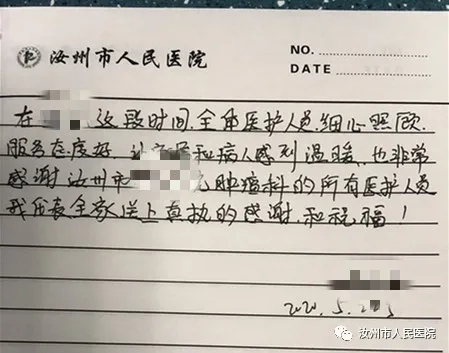 汝州市人民医院
NO.
DATE
在 这段时间.全体医护人员.细心照顾.
服务态度好. 和病人感到温暖.也非常
感谢汝州市 肿瘤科的所有医护人员
我代表全家送上真执的感谢.和祝福!
2020.5.
汝州市人民医院